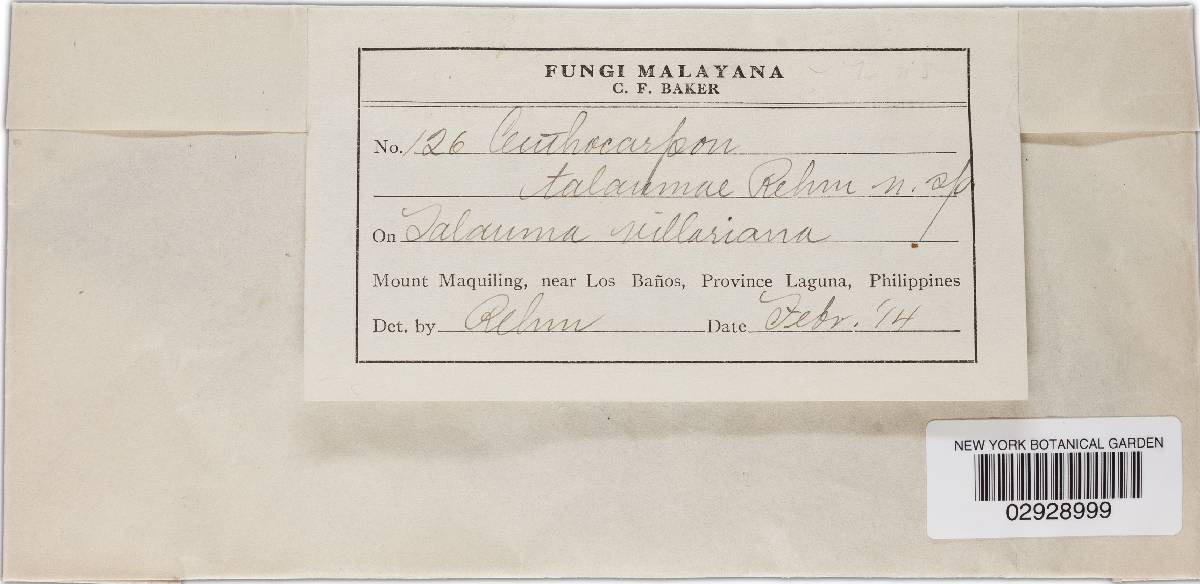 FUNGI MALAYANA
C. F. BAKER
No. 126 Ceuthocarpon
talaumae Rehm n. sp
On Talauma villariana
Mount Maquiling, near Los Baños, Province Laguna, Philippines
Det. by Rehm Date Febr. '14
NEW YORK BOTANICAL GARDEN
02928999